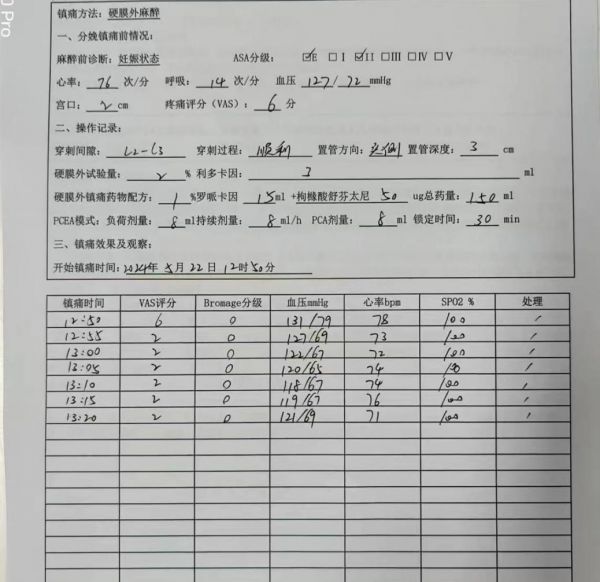 0 Pro
镇痛方法：硬膜外麻醉
一、分娩镇痛前情况：
麻醉前诊断：妊娠状态 ASA分级： ☑E □I ☑II □III □IV □V
心率：76 次/分 呼吸：14 次/分 血压 127/72 mmHg
宫口：2 cm 疼痛评分（VAS）：6 分
二、操作记录：
穿刺间隙：L2-L3 穿刺过程：顺利 置管方向：头侧 置管深度：3 cm
硬膜外试验量：2 % 利多卡因：3 ml
硬膜外镇痛药物配方：1 %罗哌卡因 15ml +枸橼酸舒芬太尼 50 ug总药量：150 ml
PCEA模式：负荷剂量：8 ml持续剂量：8 ml/h PCA剂量：8 ml 锁定时间：30 min
三、镇痛效果及观察：
开始镇痛时间：2024年 5月 22日 12时50分
镇痛时间 VAS评分 Bromage分级 血压mmHg 心率bpm SPO2 % 处理
12:50 6 0 131/79 78 100 /
12:55 2 0 127/69 73 100 /
13:00 2 0 122/67 72 100 /
13:05 2 0 120/65 74 100 /
13:10 2 0 118/67 74 100 /
13:15 2 0 119/67 76 100 /
13:20 2 0 121/69 71 100 /